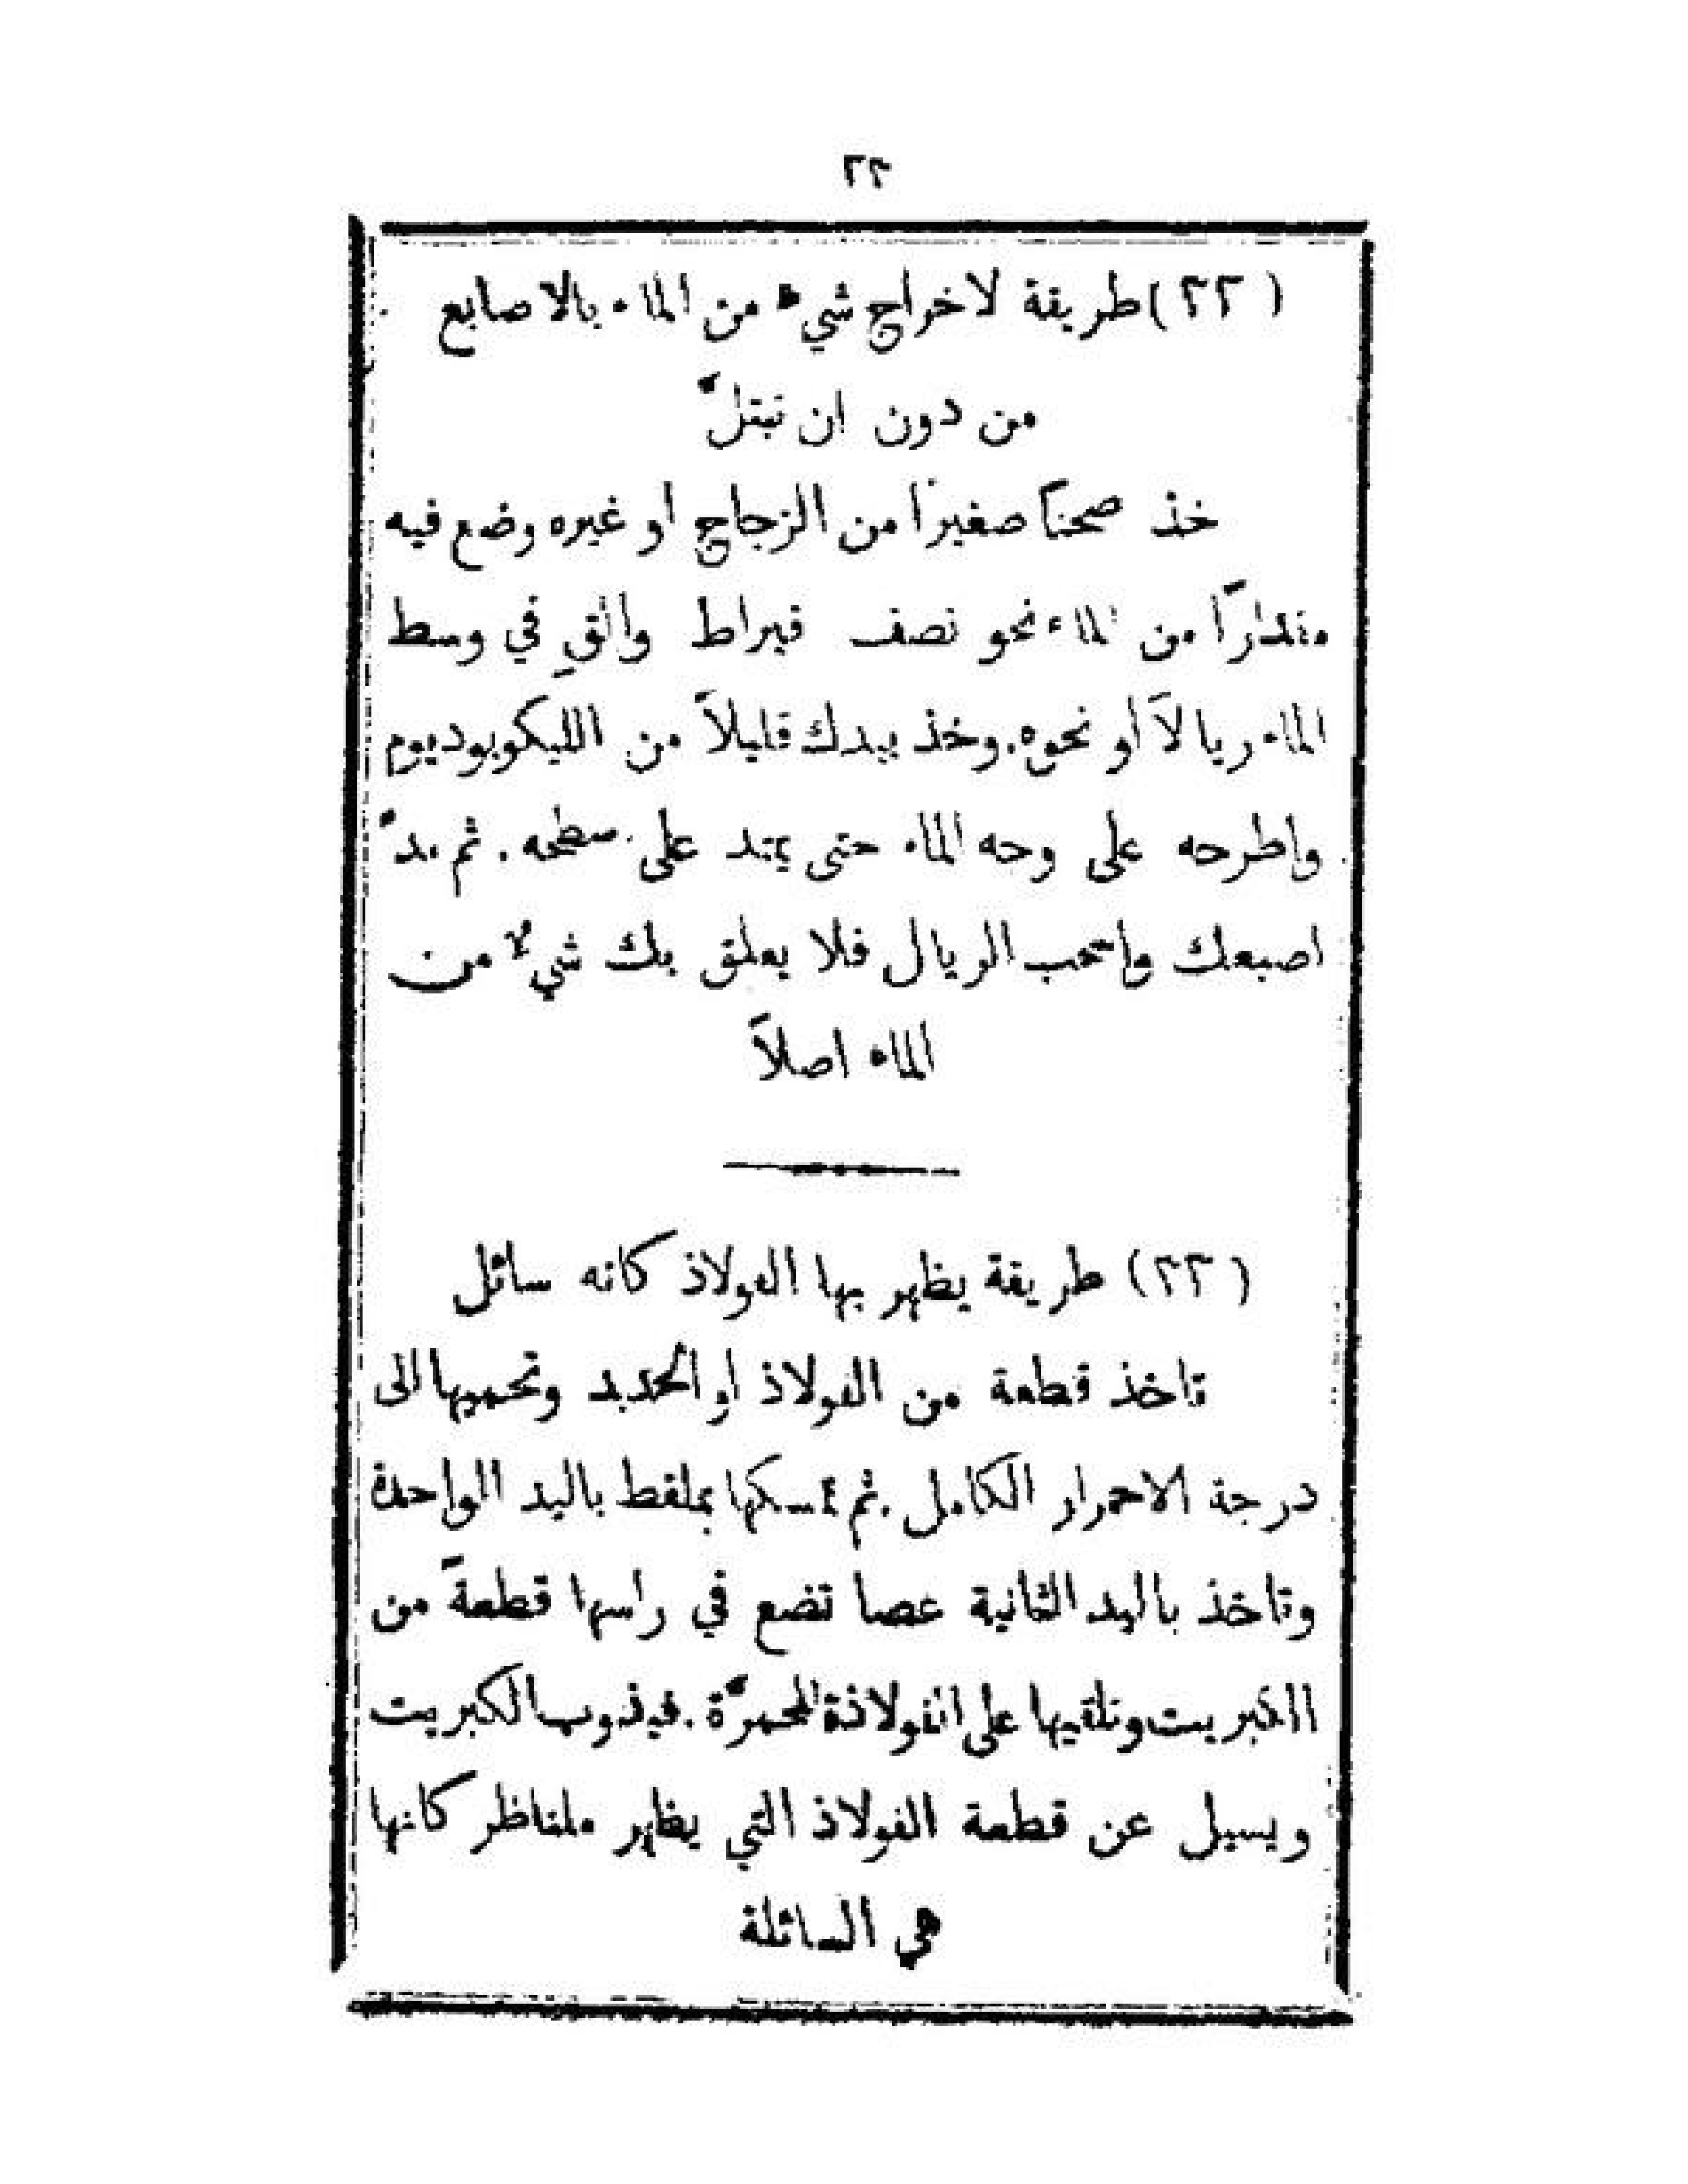 ٢٣
(٢٢) طريقة لاخراج شيء من الماء بالاصابع
من دون ان تبتلّ
خذ صحنًا صغيرًا من الزجاج او غيره وضع فيه
مقدارًا من الماء نحو نصف قيراط والقِ في وسط
الماء ريالاً او نحوه. وخذ بيدك قليلاً من الليكوبوديوم
واطرحه على وجه الماء حتى يمتد على سطحه. ثم مدّ
اصبعك واسحب الريال فلا يعلق بك شيءٌ من
الماء اصلاً
(٢٣) طريقة يظهر بها الفولاذ كانه سائل
تاخذ قطعة من الفولاذ او الحديد وتحميها الى
درجة الاحمرار الكامل. ثم تمسكها بملقط باليد الواحدة
وتاخذ باليد الثانية عصا تضع في راسها قطعةً من
الكبريت وتلقيها على الفولاذة المحمرَّة. فيذوب الكبريت
ويسيل عن قطعة الفولاذ التي يظهر للناظر كانها
هي السائلة